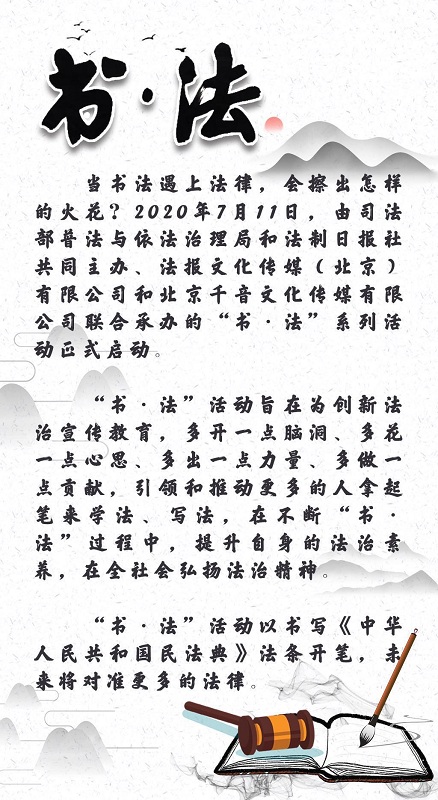 书·法
当书法遇上法律，会擦出怎样
的火花？2020年7月11日，由司法
部普法与依法治理局和法制日报社
共同主办、法报文化传媒（北京）
有限公司和北京千音文化传媒有限
公司联合承办的“书·法”系列活
动正式启动。
“书·法”活动旨在为创新法
治宣传教育，多开一点脑洞、多花
一点心思、多出一点力量、多做一
点贡献，引领和推动更多的人拿起
笔来学法、写法，在不断“书·
法”过程中，提升自身的法治素
养，在全社会弘扬法治精神。
“书·法”活动以书写《中华
人民共和国民法典》法条开笔，未
来将对准更多的法律。